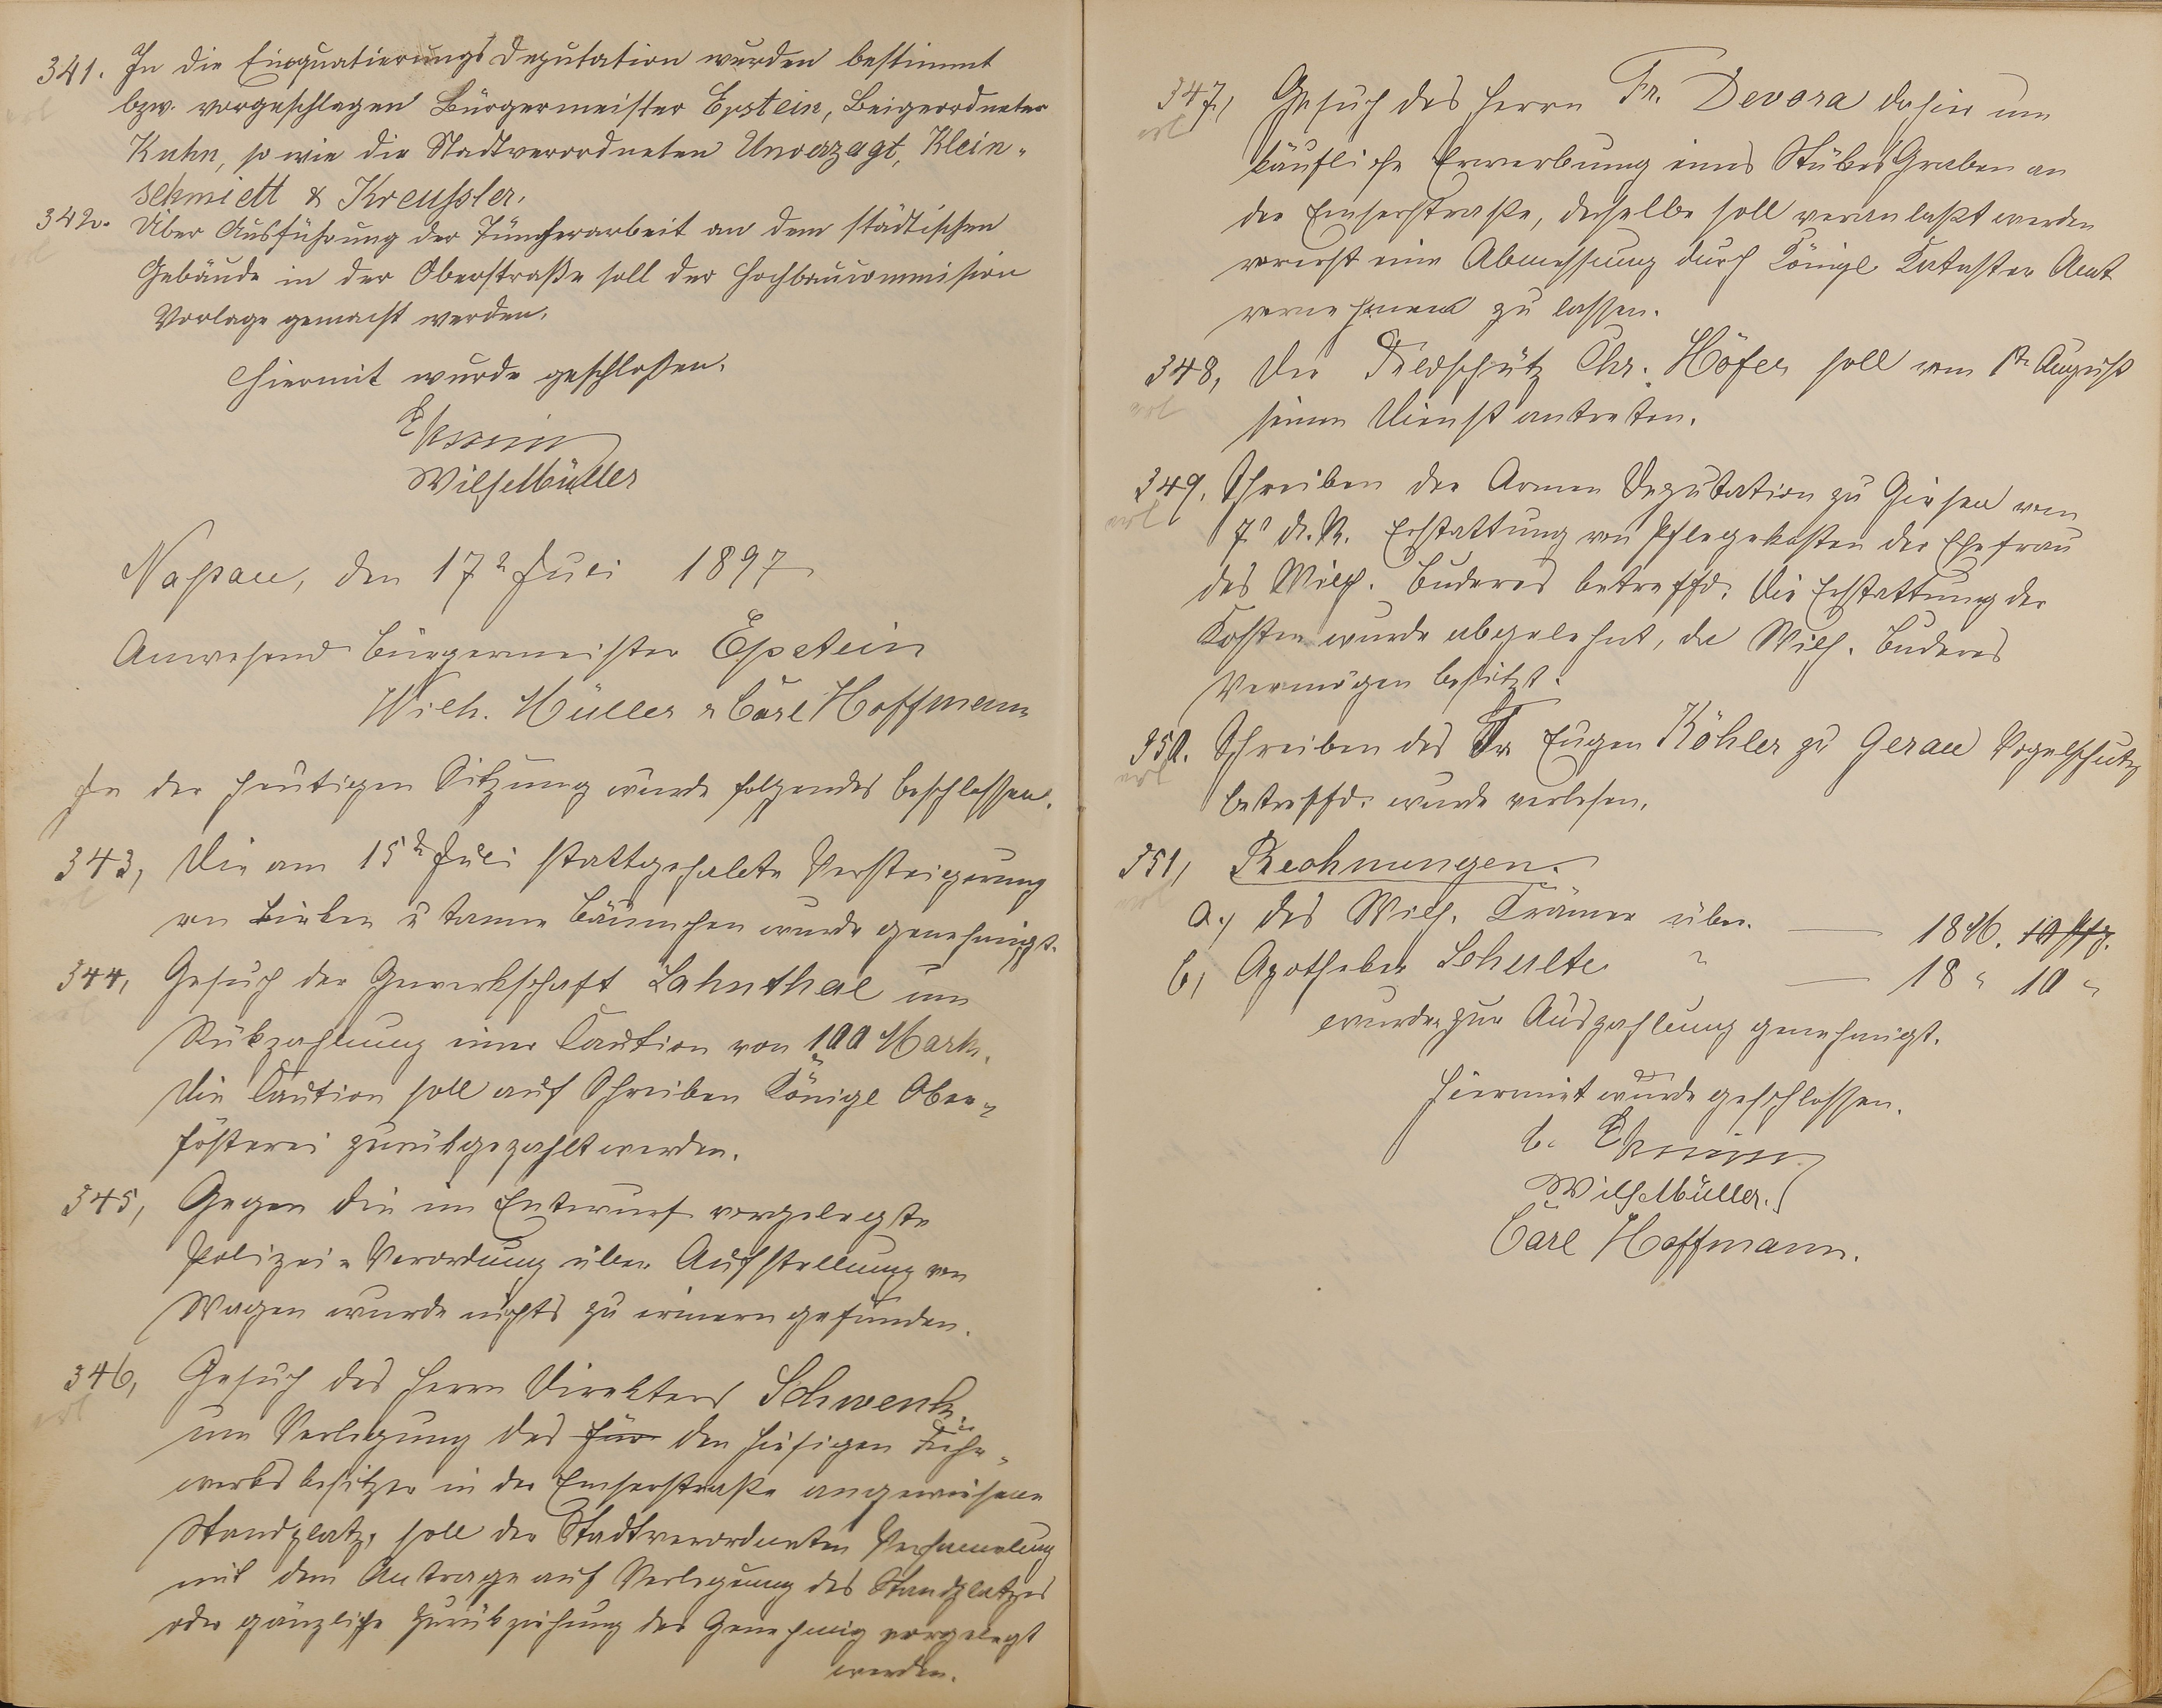 341. In die Einquatierungs Deputation wurden bestimmt
bzw. vorgeschlagen Bürgermeister Epstein, Beigeordneter
Kuhn, so wie die Stadtverordneten Unverzagt, Klein-
schmidt & Kreußler.
342. Über Ausführung der Tüncherarbeit an dem städtischen
Gebäude in der Oberstraße soll der Hochbaucommision
Vorlage gemacht werden.
Hiermit wurde geschloßen.
Epstein
Wilh Müller
Naßau, den 17n Juli 1897
Anwesend Bürgermeister Epstein
Wilh. Müller u Carl Hoffmann
In der heutigen Sitzung wurde folgendes beschlossen.
343, Die am 15tn Juli stattgehabte Versteigerung
erl
von Birken u tanne Bäumchen wurde genehmigt.
344, Gesuch der Gewerkschaft Lahnthal um
erl
Rükzahlung einer Caution von 100 Mark.
Die Caution soll auf Schreiben Königl Ober-
försterei zurükgezahlt werden.
345, Gegen die im Entwurf vorgelegte
Polizei-Verordnung über Aufstellung von
Wagen wurde nichts zu erinern gefunden.
346, Gesuch des Herrn Direktors Schwenk
erl
um Verlegung des für den hiesigen Fuhr-
werksbesitzer in der Emserstraße angewiesene
Standplatz, soll der Stadtverordneten Versamelung
mit dem Antrage auf Verlegung des Standplatzes
oder gänzliche Zurükziehung der Genehmig vorgelegt
werden.
347, Gesuch des Herrn Fr. Devora dahier um
erl
käufliche Erwerbung eines Stükes Graben an
der Emserstraße, derselbe soll veranlaßt werden
vorerst eine Abmessung durch Königl Kataster Amt
vornehmen zu lassen.
348, Der Feldschütz Chr. Höfer soll vom 1tn August
erl
seinen Dienst antreten.
349. Schreiben der Armen Deputation zu Giesen vom
erl
7n d. M. Erstattung von Pflegekosten der Ehefrau
des Wilh. Buderus betreffd. Die Erstattung der
Kosten wurde abgelehnt, da Wilh. Buderus
Vermögen besitzt.
350. Schreiben des Dr Eugen Köhler zu Gerau Vogelschutz
erl
betreffd. wurde verlesen.
351, Rechnungen.
erl
a, des Wilh. Krämer über. — 18 M. 10 Pfg.
b, Apotheker Schulte " — 18 " 10 "
wurden zur Auszahlung genehmigt.
Hiermit wurde geschlossen.
Epstein
Wilh Müller.
Carl Hoffmann.